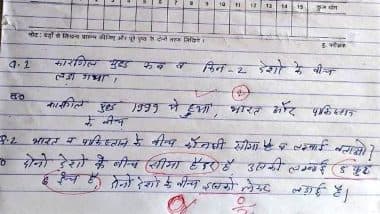 1 2 3 4 5 6 7 8 9 10 11 12 13 14 15 कुल योग
नोट: यहाँ से लिखना प्रारम्भ कीजिए और पृष्ठ के दोनों तरफ लिखिए।
ह. परीक्षक
Q.1 कारगिल युद्ध कब व किन-2 देशों के बीच
लड़ा गया।
कारगिल युद्ध 1999 में हुआ, भारत और पाकिस्तान
के बीच
Q-2 भारत व पाकिस्तान के बीच कौनसी सीमा है व लम्बाई बताओ?
दोनों देशों के बीच सीमा हैदर है, उसकी लम्बाई 5 फुट
6 इंच है, दोनों देशों के बीच इसको लेकर लड़ाई है।